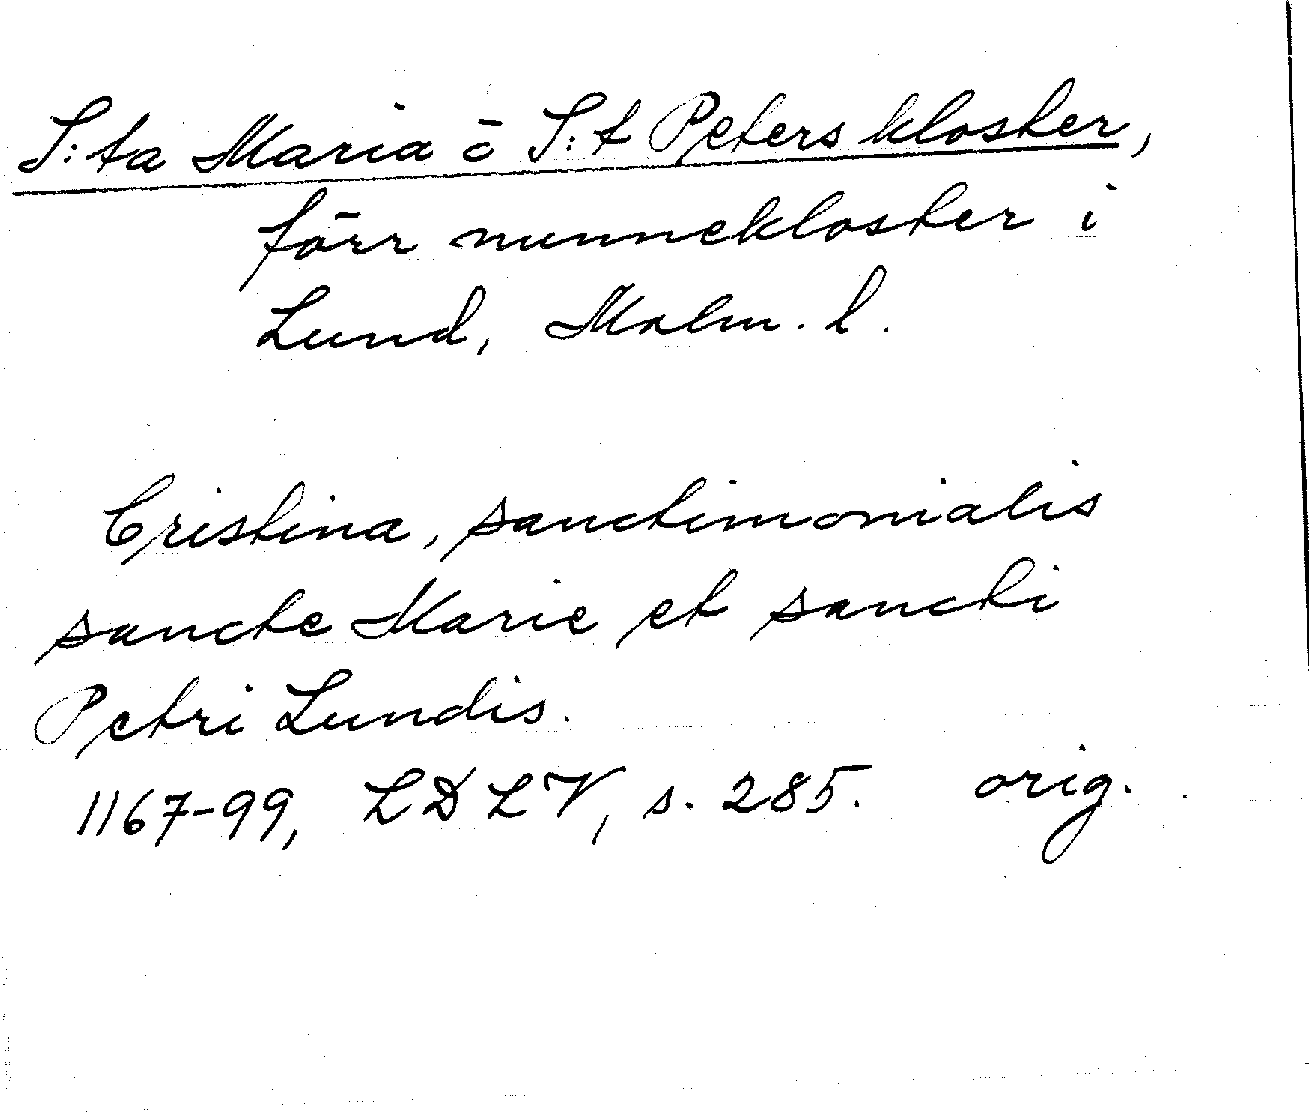 S:ta Maria o̅ S:t Peters kloster,
förr nunnekloster i
Lund, Malm. l.
Cristina, sanctimonialis
sancte Marie et sancti
Petri Lundis.
1167-99, LDLV, s. 285. orig.